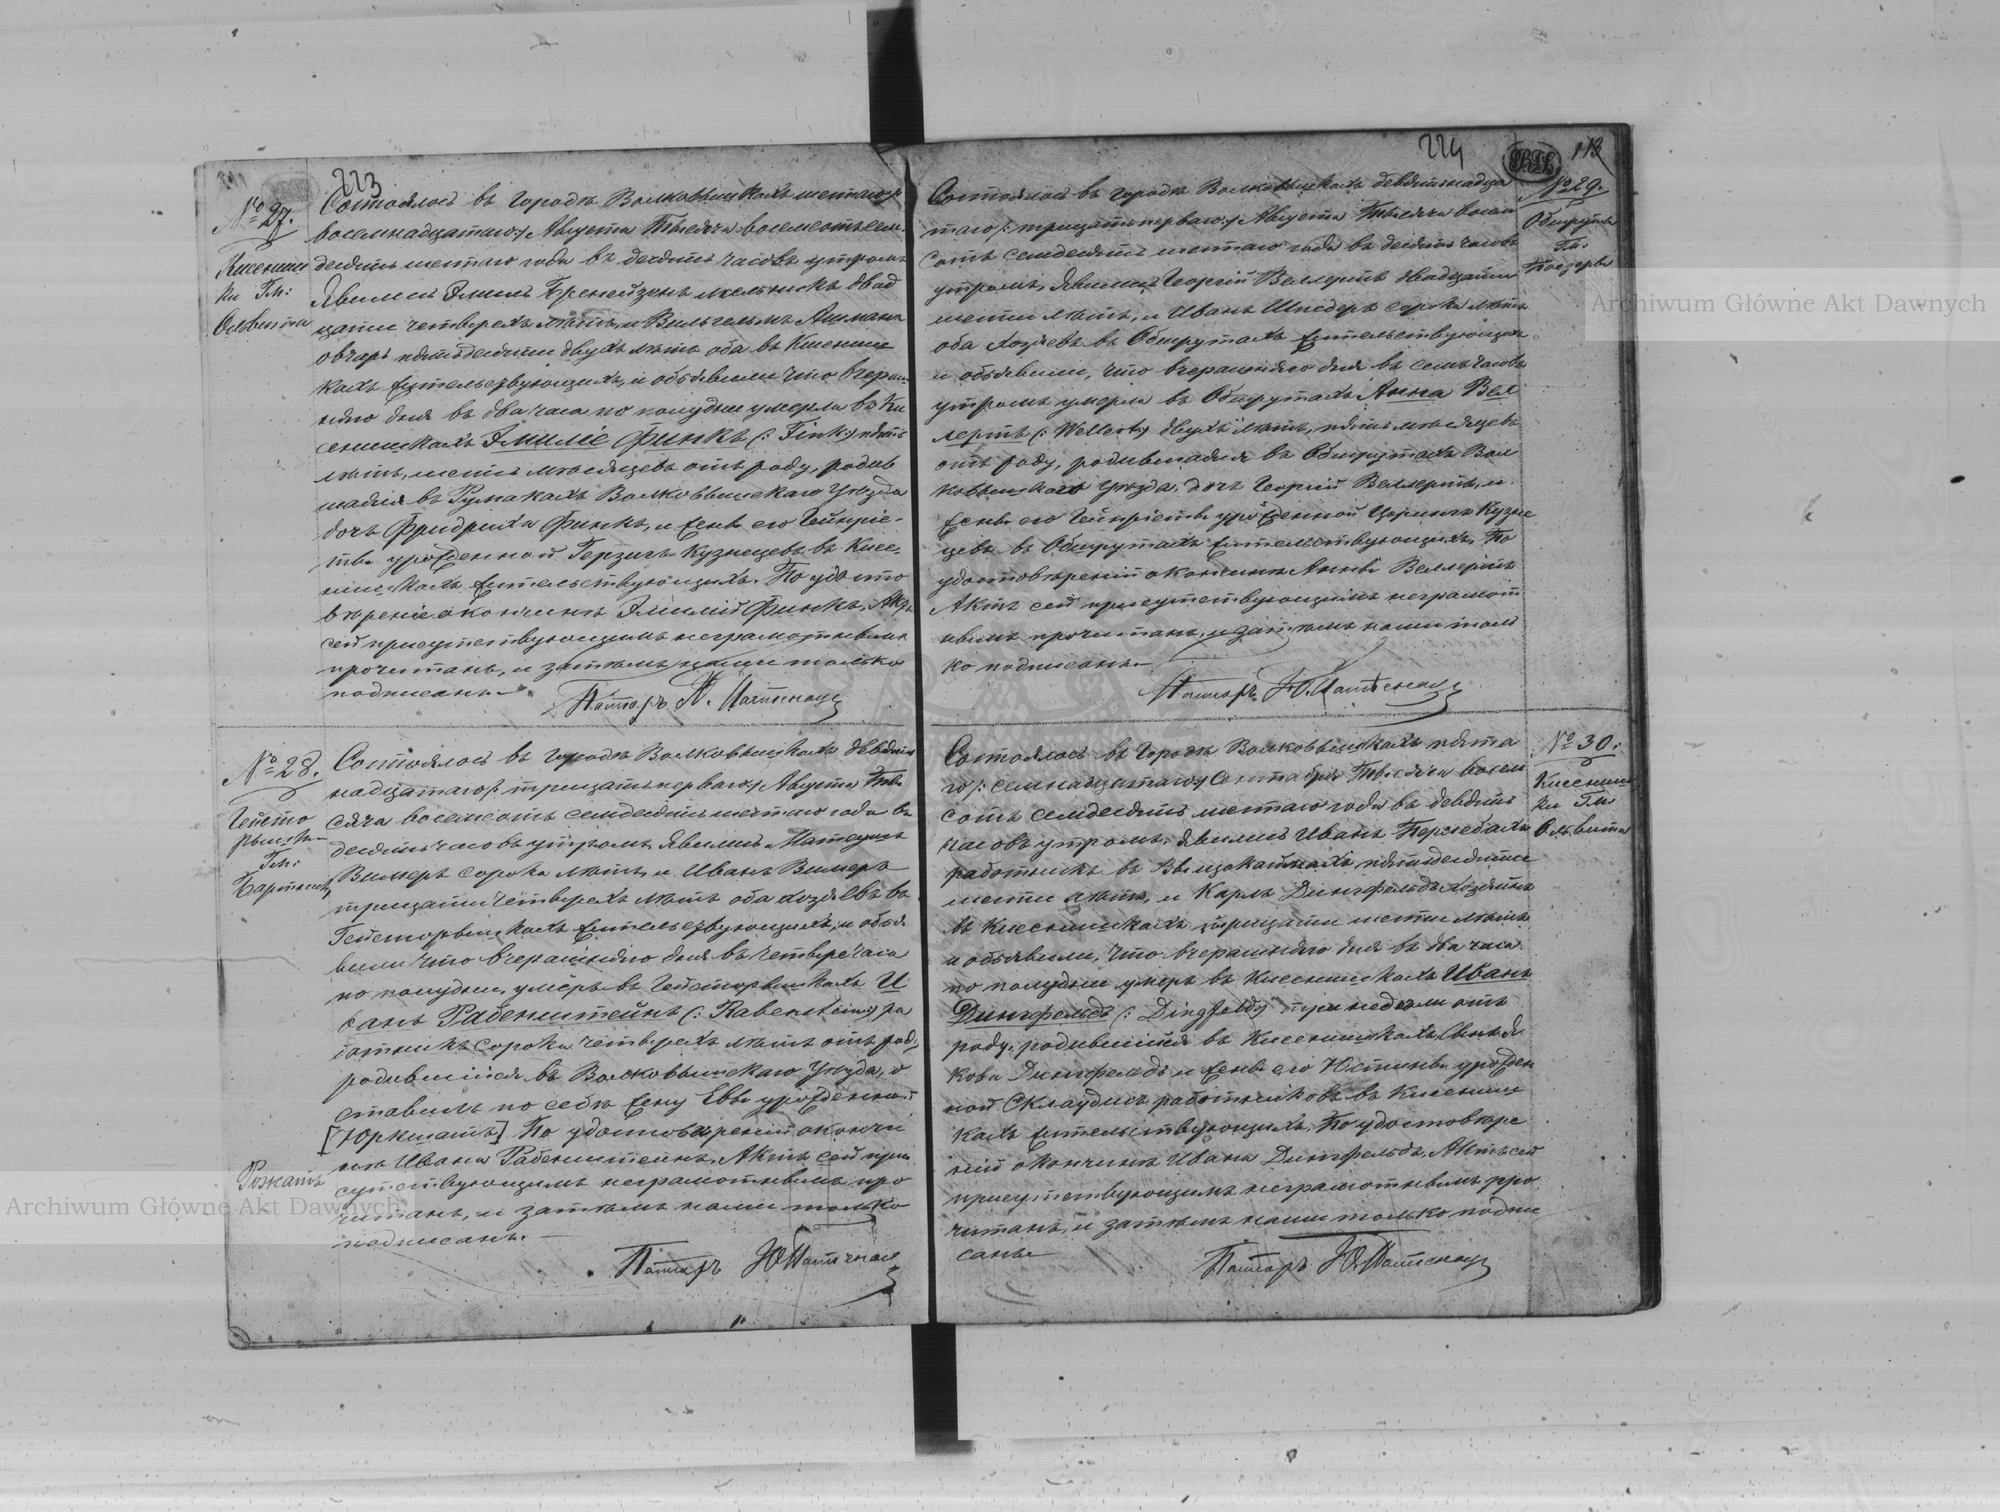 223
№ 27.
Кисениш
ки Гм:
Ольвита
Состоялось въ городѣ Волковышкахъ шестаго /:
восемнадцатаго:/ Августа Тысяча восемьсотъ сем
десять шестаго года въ десять часовъ утромъ
Явились Эмиль мельникъ двад
цати четырехъ лѣтъ, и Вильгельмъ Ашманъ
овчаръ пятидесяти двухъ лѣтъ оба въ Кисениш
кахъ жительствующихъ, и объявили что вчераш
няго дня въ два часа по полудни умерла въ Ки
сенишкахъ Эмиліе Финкъ (: Fink:) пять
лѣтъ, шесть мѣсяцевъ отъ роду, родив
шаяся въ Румакахъ Волковышскаго Уѣзда
дочь Фридриха Финкъ, и жены его Гейнріе-
ты урожденной Герзигъ кузнецевъ въ Кисе-
нишкахъ жительствующихъ. По удосто
вѣреніе окончинѣ Эмиліи Финкъ, Актъ
сей присутствующимъ неграмотнымъ
прочитанъ, и затѣмъ нами только
подписанъ.
Пасторъ
№ 28.
Гейсто
ришки
Гм:
Бартники
Состоялось въ городѣ Волковышкахъ девят
надцатаго /: тридцать перваго:/ Августа Ты
сяча восемьсотъ семдесять шестаго года въ
десять часовъ утромъ, Явились Матеушъ
Вимеръ сорока лѣтъ, и Иванъ Вимеръ
тридцати четырехъ лѣтъ оба хозяевъ въ
жительствующихъ, и объя
вили что вчерашняго дня въ четыре часа
по полудни, умеръ въ И
ванъ Рабенштейнъ (: Rabenstein:) ра
ботникъ сорока четырехъ лѣтъ отъ роду
родившійся въ Волковышскаго Уѣзда, о
ставилъ по себѣ жену Евы урожденной
[Юркшатъ] По удостовѣреніи окончи
нѣ Ивана Рабенштейнъ, Актъ сей при
сутствующимъ неграмотнымъ про
читанъ, и затѣмъ нами только
подписанъ. —
Пасторъ
224
113
№ 29.
Обшруты
Гм:
Состоялось въ городѣ Волковышкахъ девятнадца
таго /: тридцать перваго:/ Августа Тысяча восем
сотъ семдесять шестаго года въ десять часовъ
утромъ, Явились Георгій Веллертъ двадцати
шести лѣтъ, и Иванъ Шнедеръ сорока лѣтъ
оба хозяевъ въ Обшрутахъ жительствующихъ
и объявили, что вчерашняго дня въ семь часовъ
утромъ умерла въ Обшрутахъ Анна Вел
лертъ (: Wellert:) двухъ лѣтъ, пять мѣсяцевъ
отъ роду, родившаяся въ Обшрутахъ Вол
ковышскаго Уѣзда, дочь Георгій Веллертъ, и
жены его Гейнріеты урожденной кузне
цевъ въ Обшрутахъ жительствующихъ. По
удостовѣреніи окончинѣ Анны Веллертъ
Актъ сей присутствующимъ неграмот
нымъ прочитанъ, и затѣмъ нами толь
ко подписанъ. —
Пасторъ
№ 30.
Кисениш
ки Гм:
Ольвита
Состоялось въ городѣ Волковышкахъ пята
го /: семнадцатаго:/ Сентября Тысяча восем
сотъ семдесять шестаго года въ девять
часовъ утромъ, явились Иванъ
работникъ въ пятидесяти
шести лѣтъ, и Карлъ Дингфельдъ хозяинъ
въ Кисенишкахъ, тридцати шести лѣтъ
и объявили, что вчерашняго дня въ два часа
по полудни умеръ въ Кисенишкахъ Иванъ
Дингфельдъ (: Dingfeld:) три недѣли отъ
роду, родившійся въ Кисенишкахъ, сынъ Я
кова Дингфельдъ и жены его Юстины урожден
ной Склаудисъ работниковъ въ Кисениш
кахъ жительствующихъ, По удостовѣре
ніи окончинѣ Ивана Дингфельдъ, Актъ сей
присутствующимъ неграмотнымъ про
читанъ, и затѣмъ нами только подпи
санъ. —
Пасторъ
Archiwum Główne Akt Dawnych
Archiwum Główne Akt Dawnych